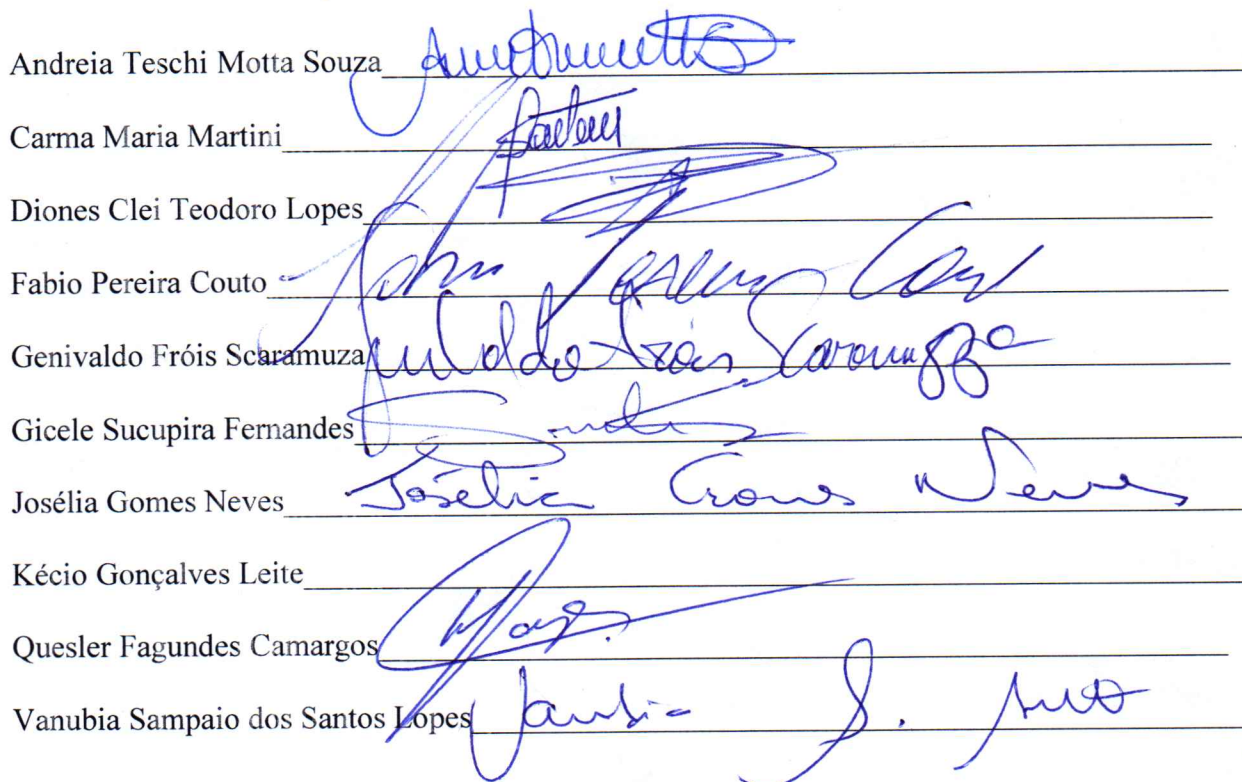 Andreia Teschi Motta Souza
Carma Maria Martini
Diones Clei Teodoro Lopes
Fabio Pereira Couto
Genivaldo Fróis Scaramuza Genivaldo Fróis Scaramuzza
Gicele Sucupira Fernandes
Josélia Gomes Neves Josélia Gomes Neves
Kécio Gonçalves Leite
Quesler Fagundes Camargos
Vanubia Sampaio dos Santos Lopes Vanubia S.